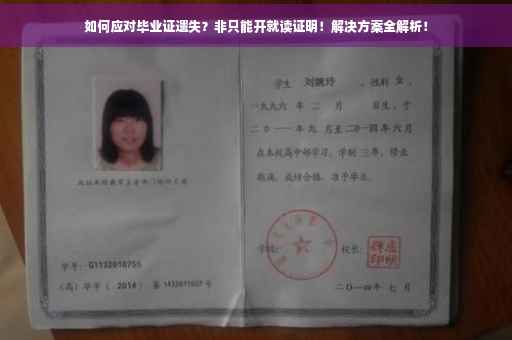 如何应对毕业证遗失？非只能开就读证明！解决方案全解析！
学生 刘婉玲 ，性别 女 ，
一九九六 年 二 月 日生，于
二〇一一 年 九 月至 二〇一四 年 六 月
在本校高中部学习，学制 三年，修业
期满，成绩合格，准予毕业。
学号： G1132010755
（高）毕字（ 2014 ）第 1432011027 号
学校：
校长：
二〇一四年 七 月